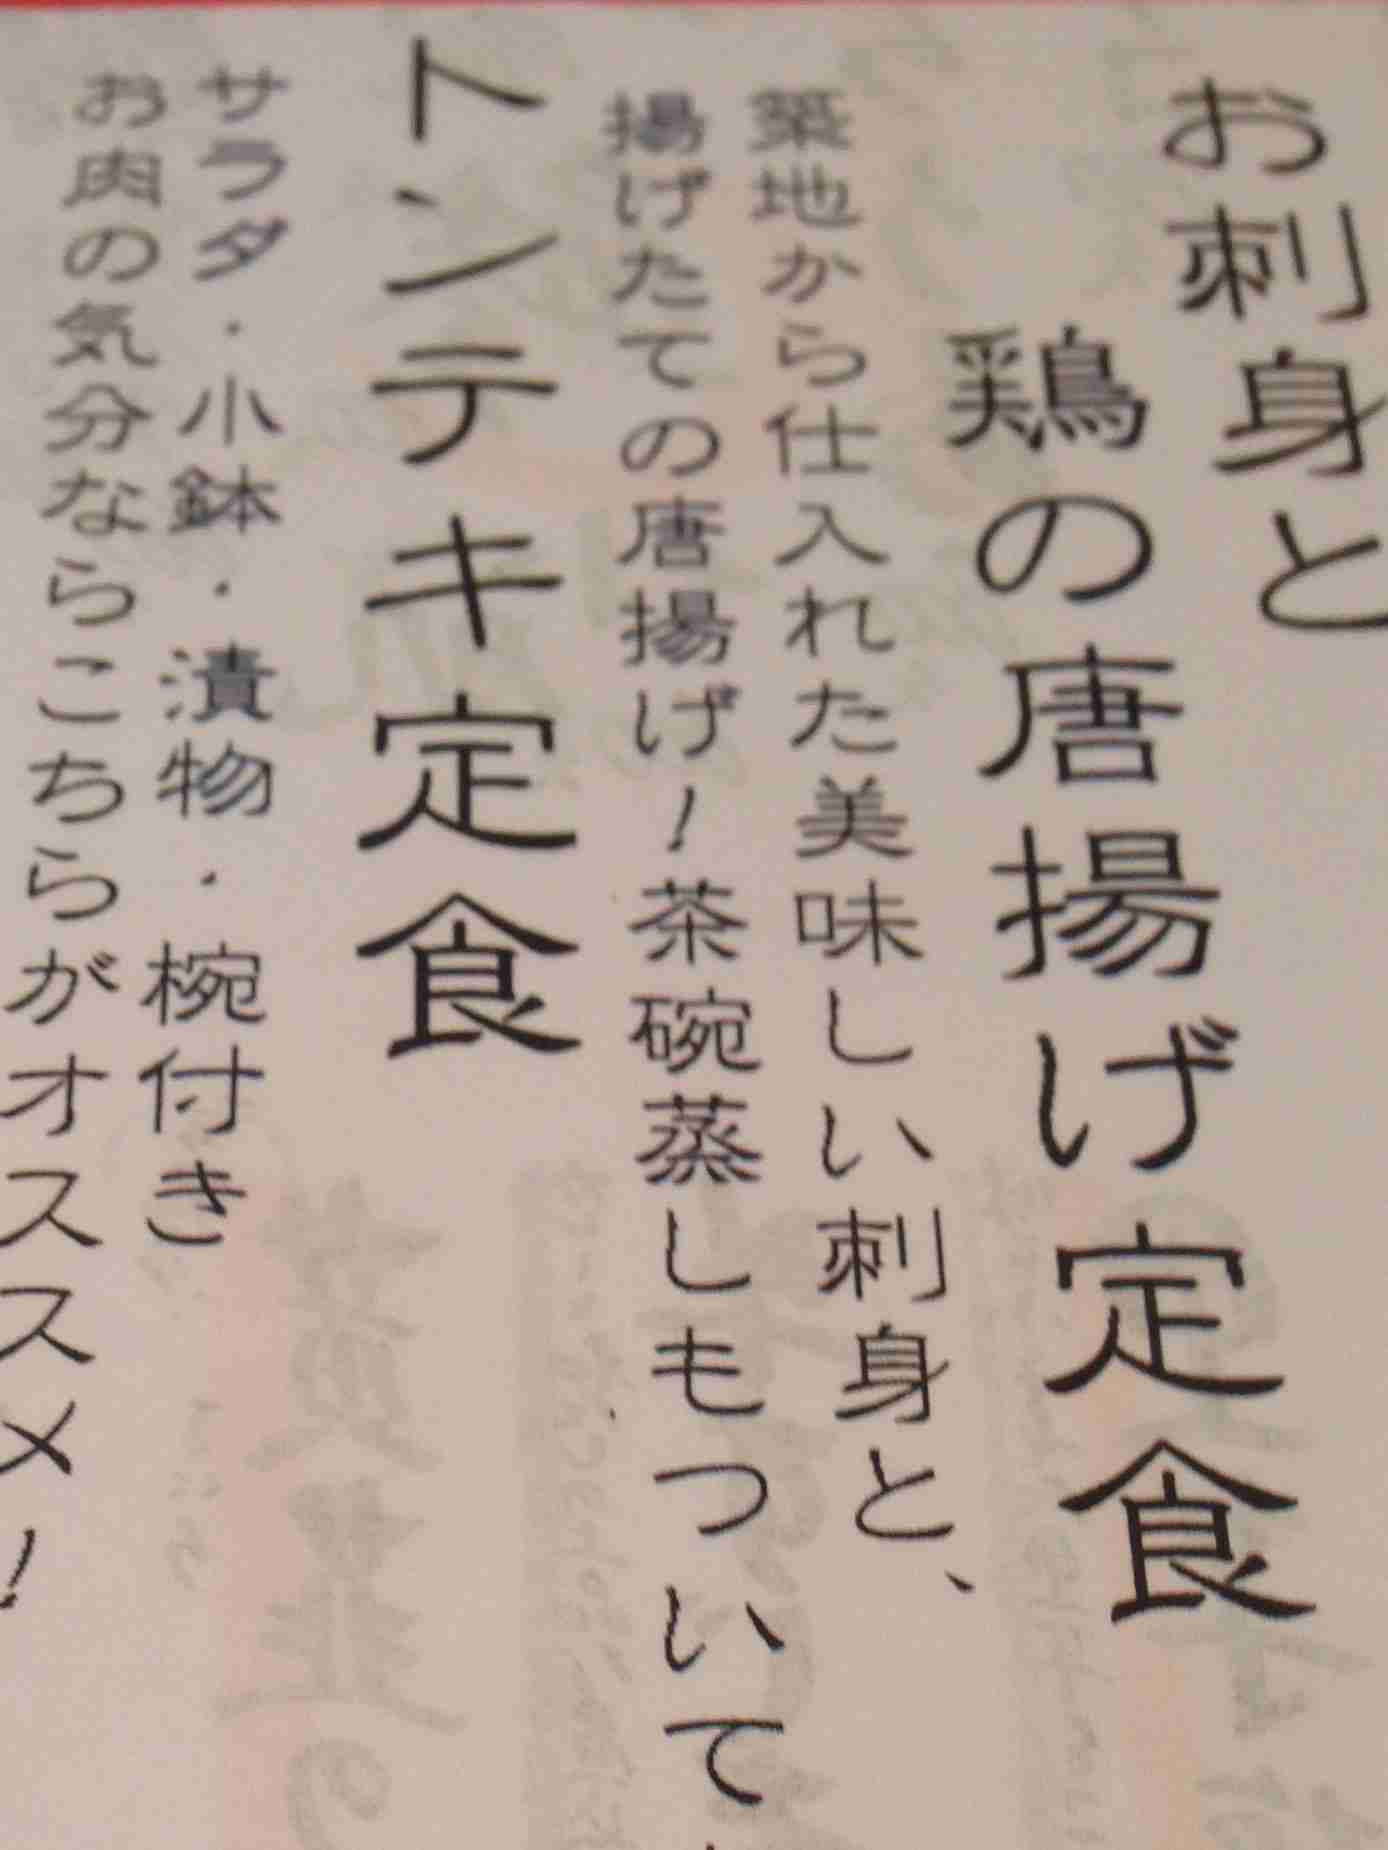 お刺身と
鶏の唐揚げ定食
築地から仕入れた美味しい刺身と、
揚げたての唐揚げ！茶碗蒸しもついて
トンテキ定食
サラダ・小鉢・漬物・椀付き
お肉の気分ならこちらがオススメ！